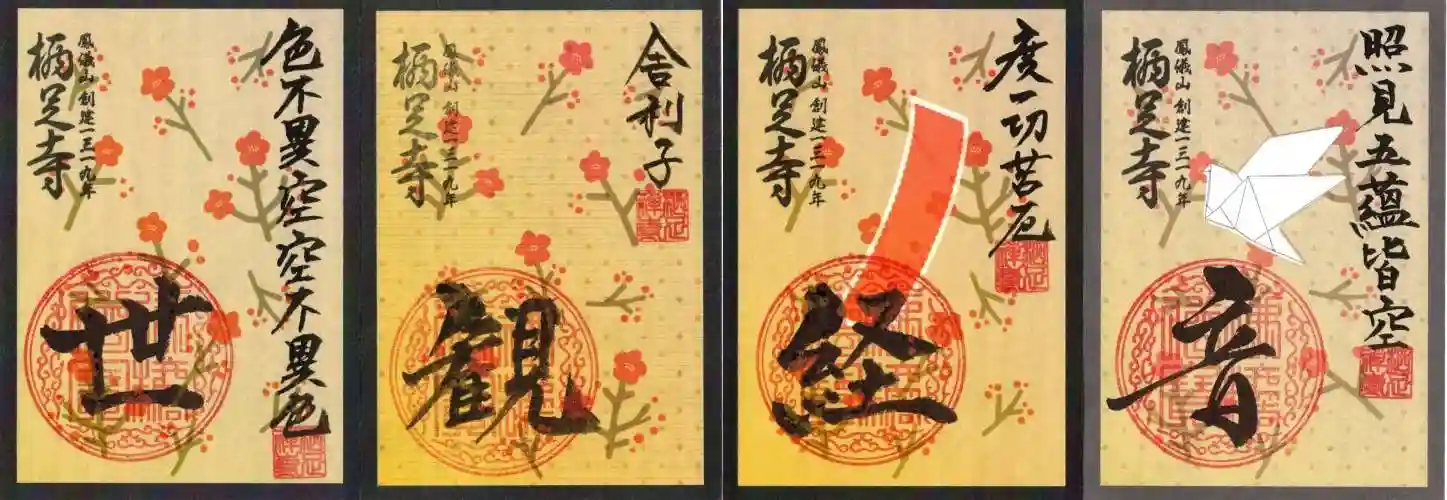 色不異空空不異色
鳳儀山 創建一三一九年
栖足寺
世
舎利子
鳳儀山 創建一三一九年
栖足寺
観
度一切苦厄
鳳儀山 創建一三一九年
栖足寺
経
照見五蘊皆空
鳳儀山 創建一三一九年
栖足寺
音